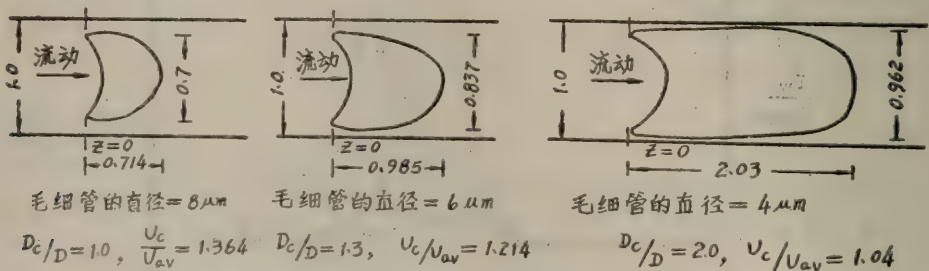 1.0
流动
0.7
z=0
0.714
毛细管的直径=8μm
Dc/D=1.0, Uc/Uav=1.364
1.0
流动
0.837
z=0
0.985
毛细管的直径=6μm
Dc/D=1.3, Uc/Uav=1.214
1.0
流动
0.962
z=0
2.03
毛细管的直径=4μm
Dc/D=2.0, Uc/Uav=1.04